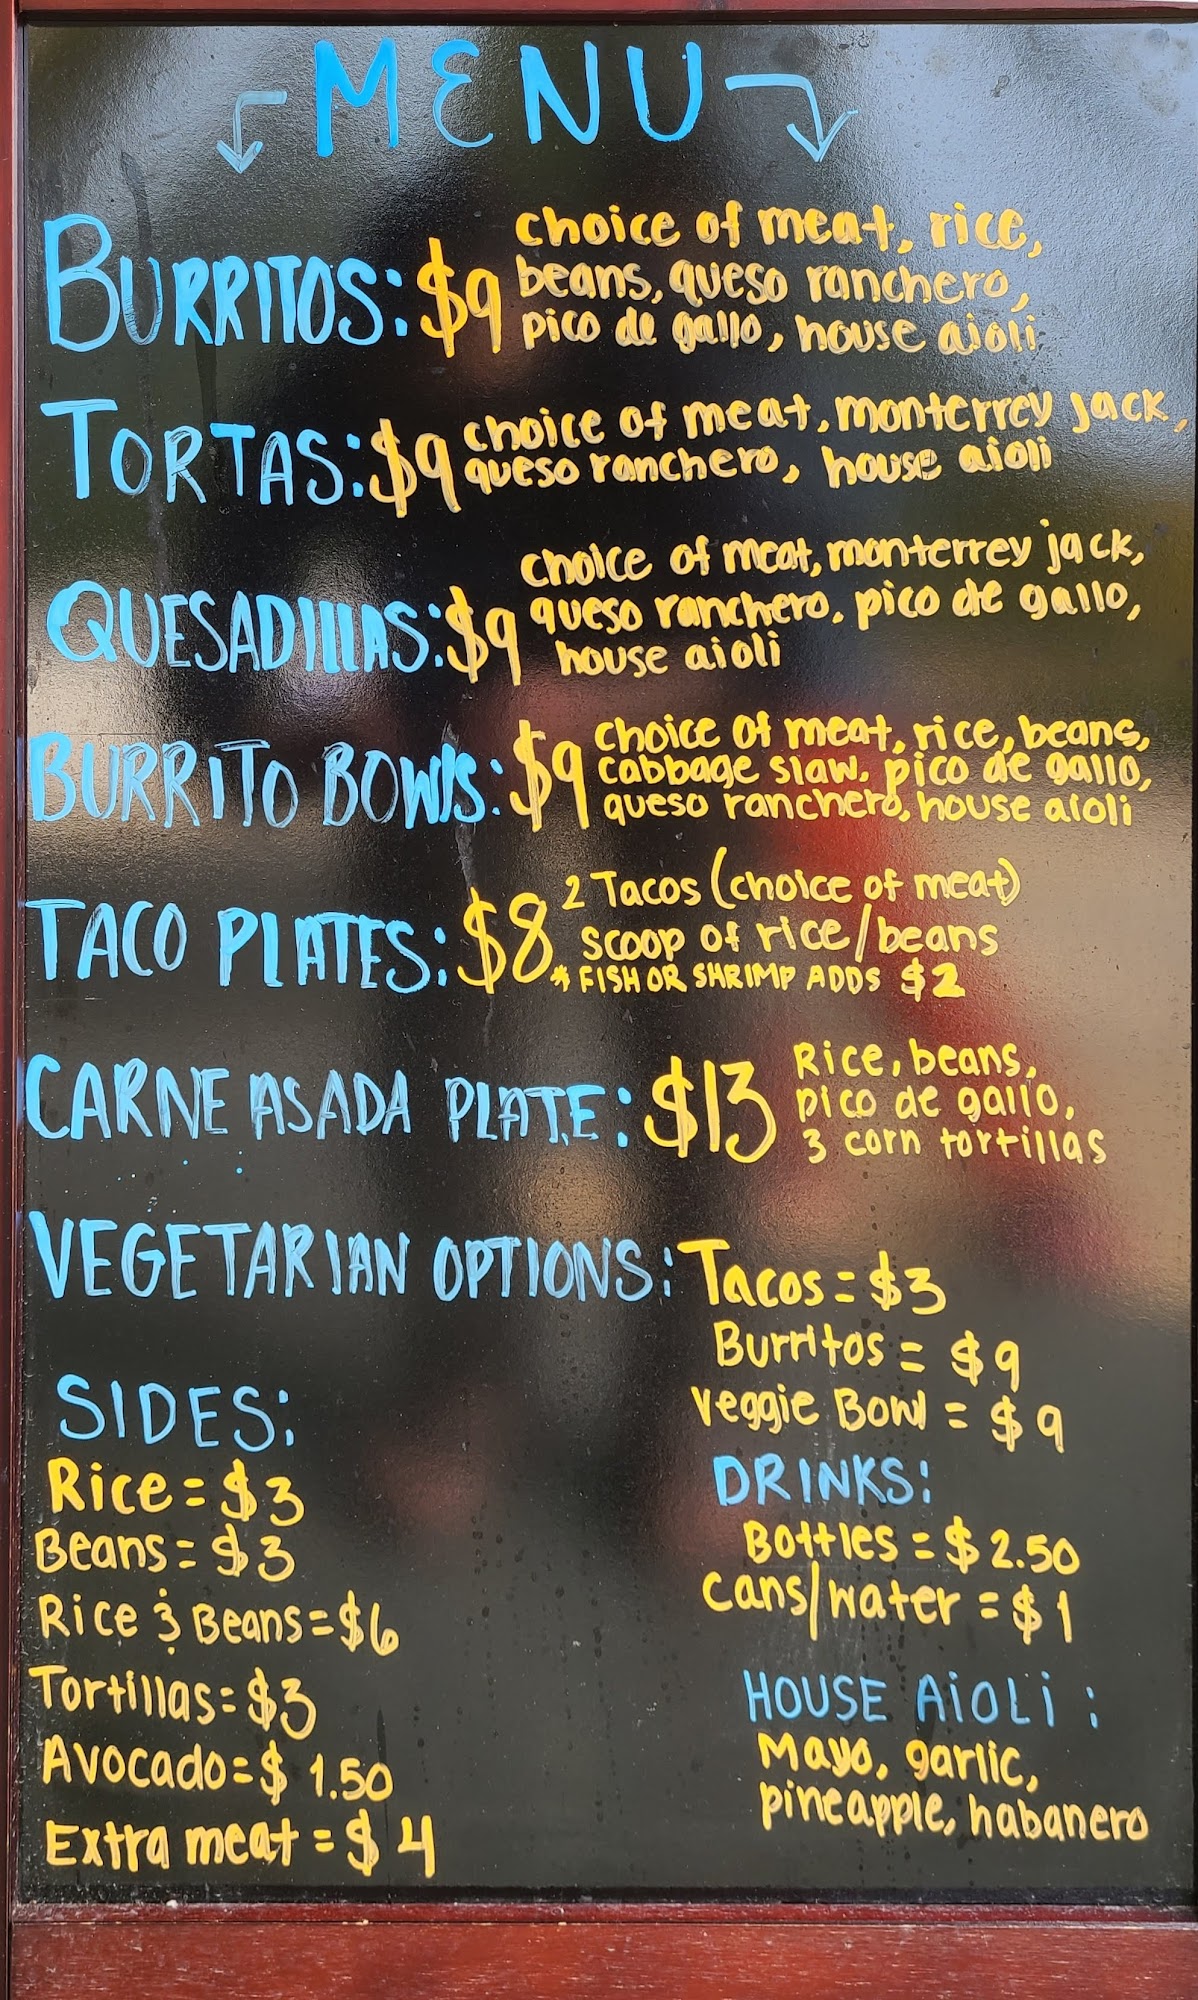 MENU
BURRITOS: $9 choice of meat, rice,
beans, queso ranchero,
pico de gallo, house aioli
TORTAS: $9 choice of meat, monterrey jack,
queso ranchero, house aioli
QUESADILLAS: $9 choice of meat, monterrey jack,
queso ranchero, pico de gallo,
house aioli
BURRITO BOWLS: $9 choice of meat, rice, beans,
cabbage slaw, pico de gallo,
queso ranchero, house aioli
TACO PLATES: $8 2 Tacos (choice of meat)
scoop of rice/beans
* FISH OR SHRIMP ADDS $2
CARNE ASADA PLATE: $13 Rice, beans,
pico de gallo,
3 corn tortillas
VEGETARIAN OPTIONS: Tacos = $3
Burritos = $9
Veggie Bowl = $9
SIDES:
Rice = $3
Beans = $3
Rice & Beans = $6
Tortillas = $3
Avocado = $1.50
Extra meat = $4
DRINKS:
Bottles = $2.50
Cans/water = $1
HOUSE AiOLi:
Mayo, garlic,
pineapple, habanero